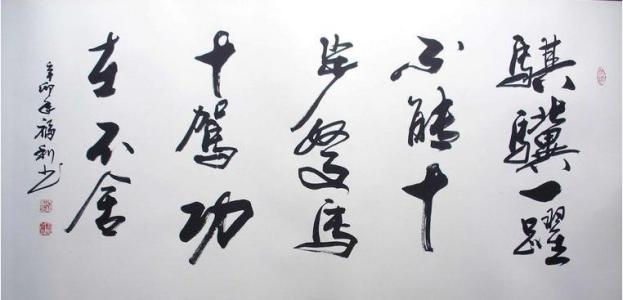 騏驥一躍
不能十
步駑馬
十駕功
在不舍
辛卯年福利书